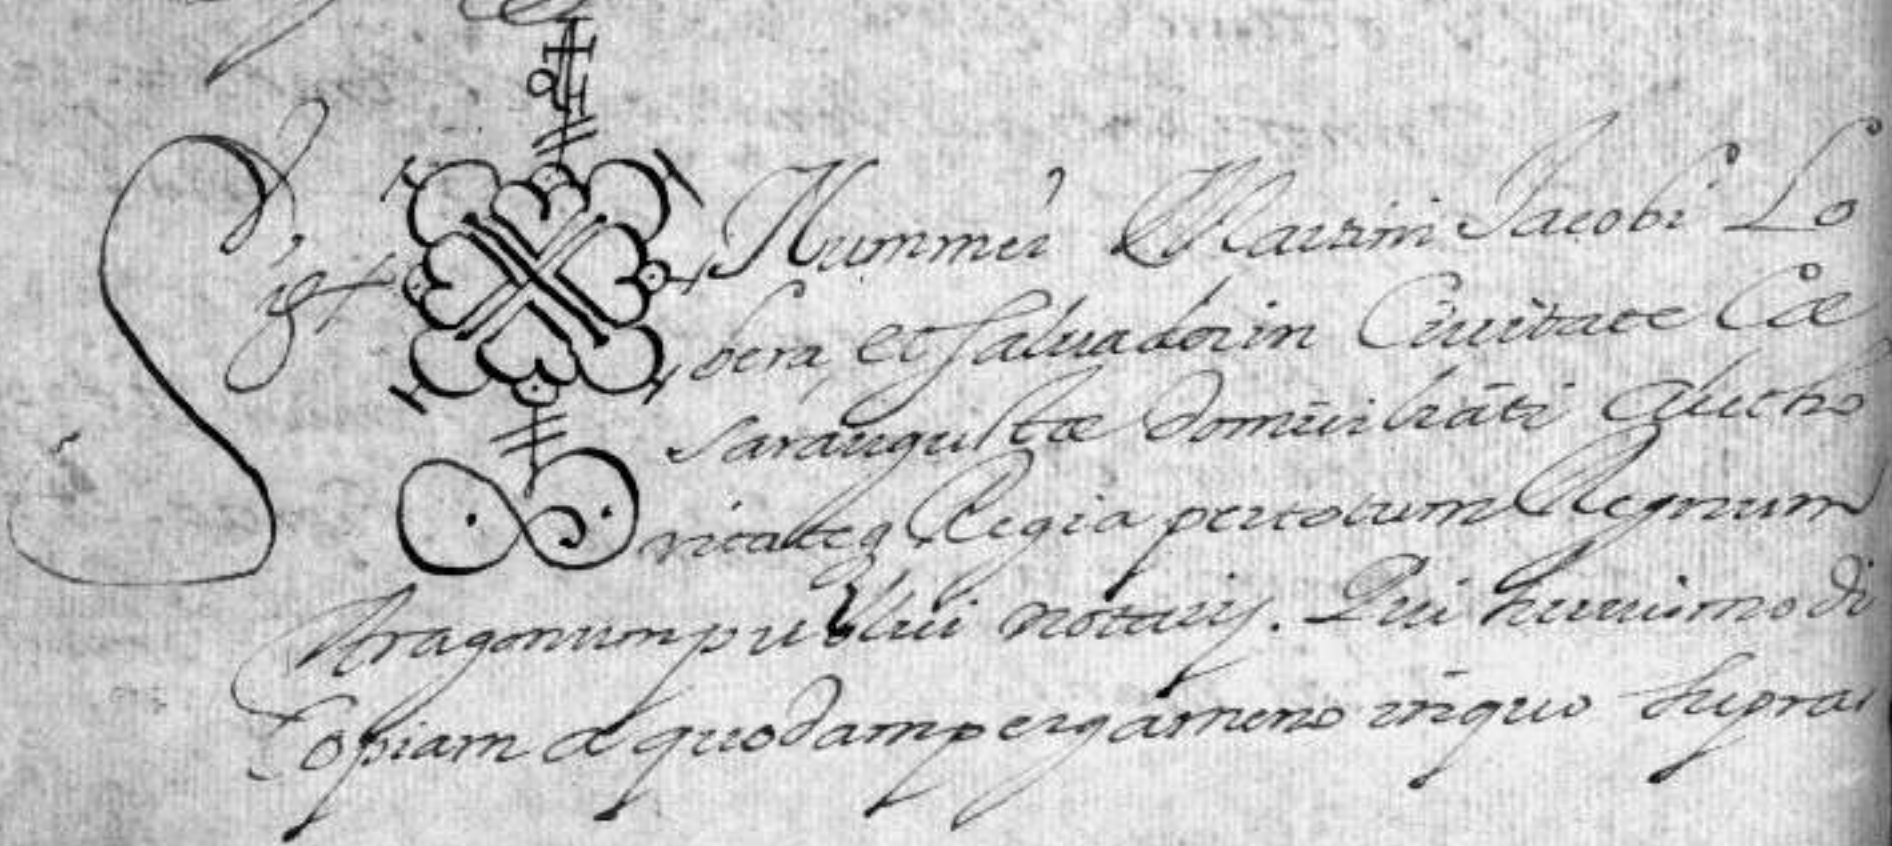 Sig Nummeu Martini Jacobi Lo
bera, et Salvador in Civitate Cæ
saraugustæ domiciliāti Aucto
ritateq Regia per totum Regnum
Aragonum publici notarij. Qui huiusmodi
Copiam a quodam pergameno in quo supra